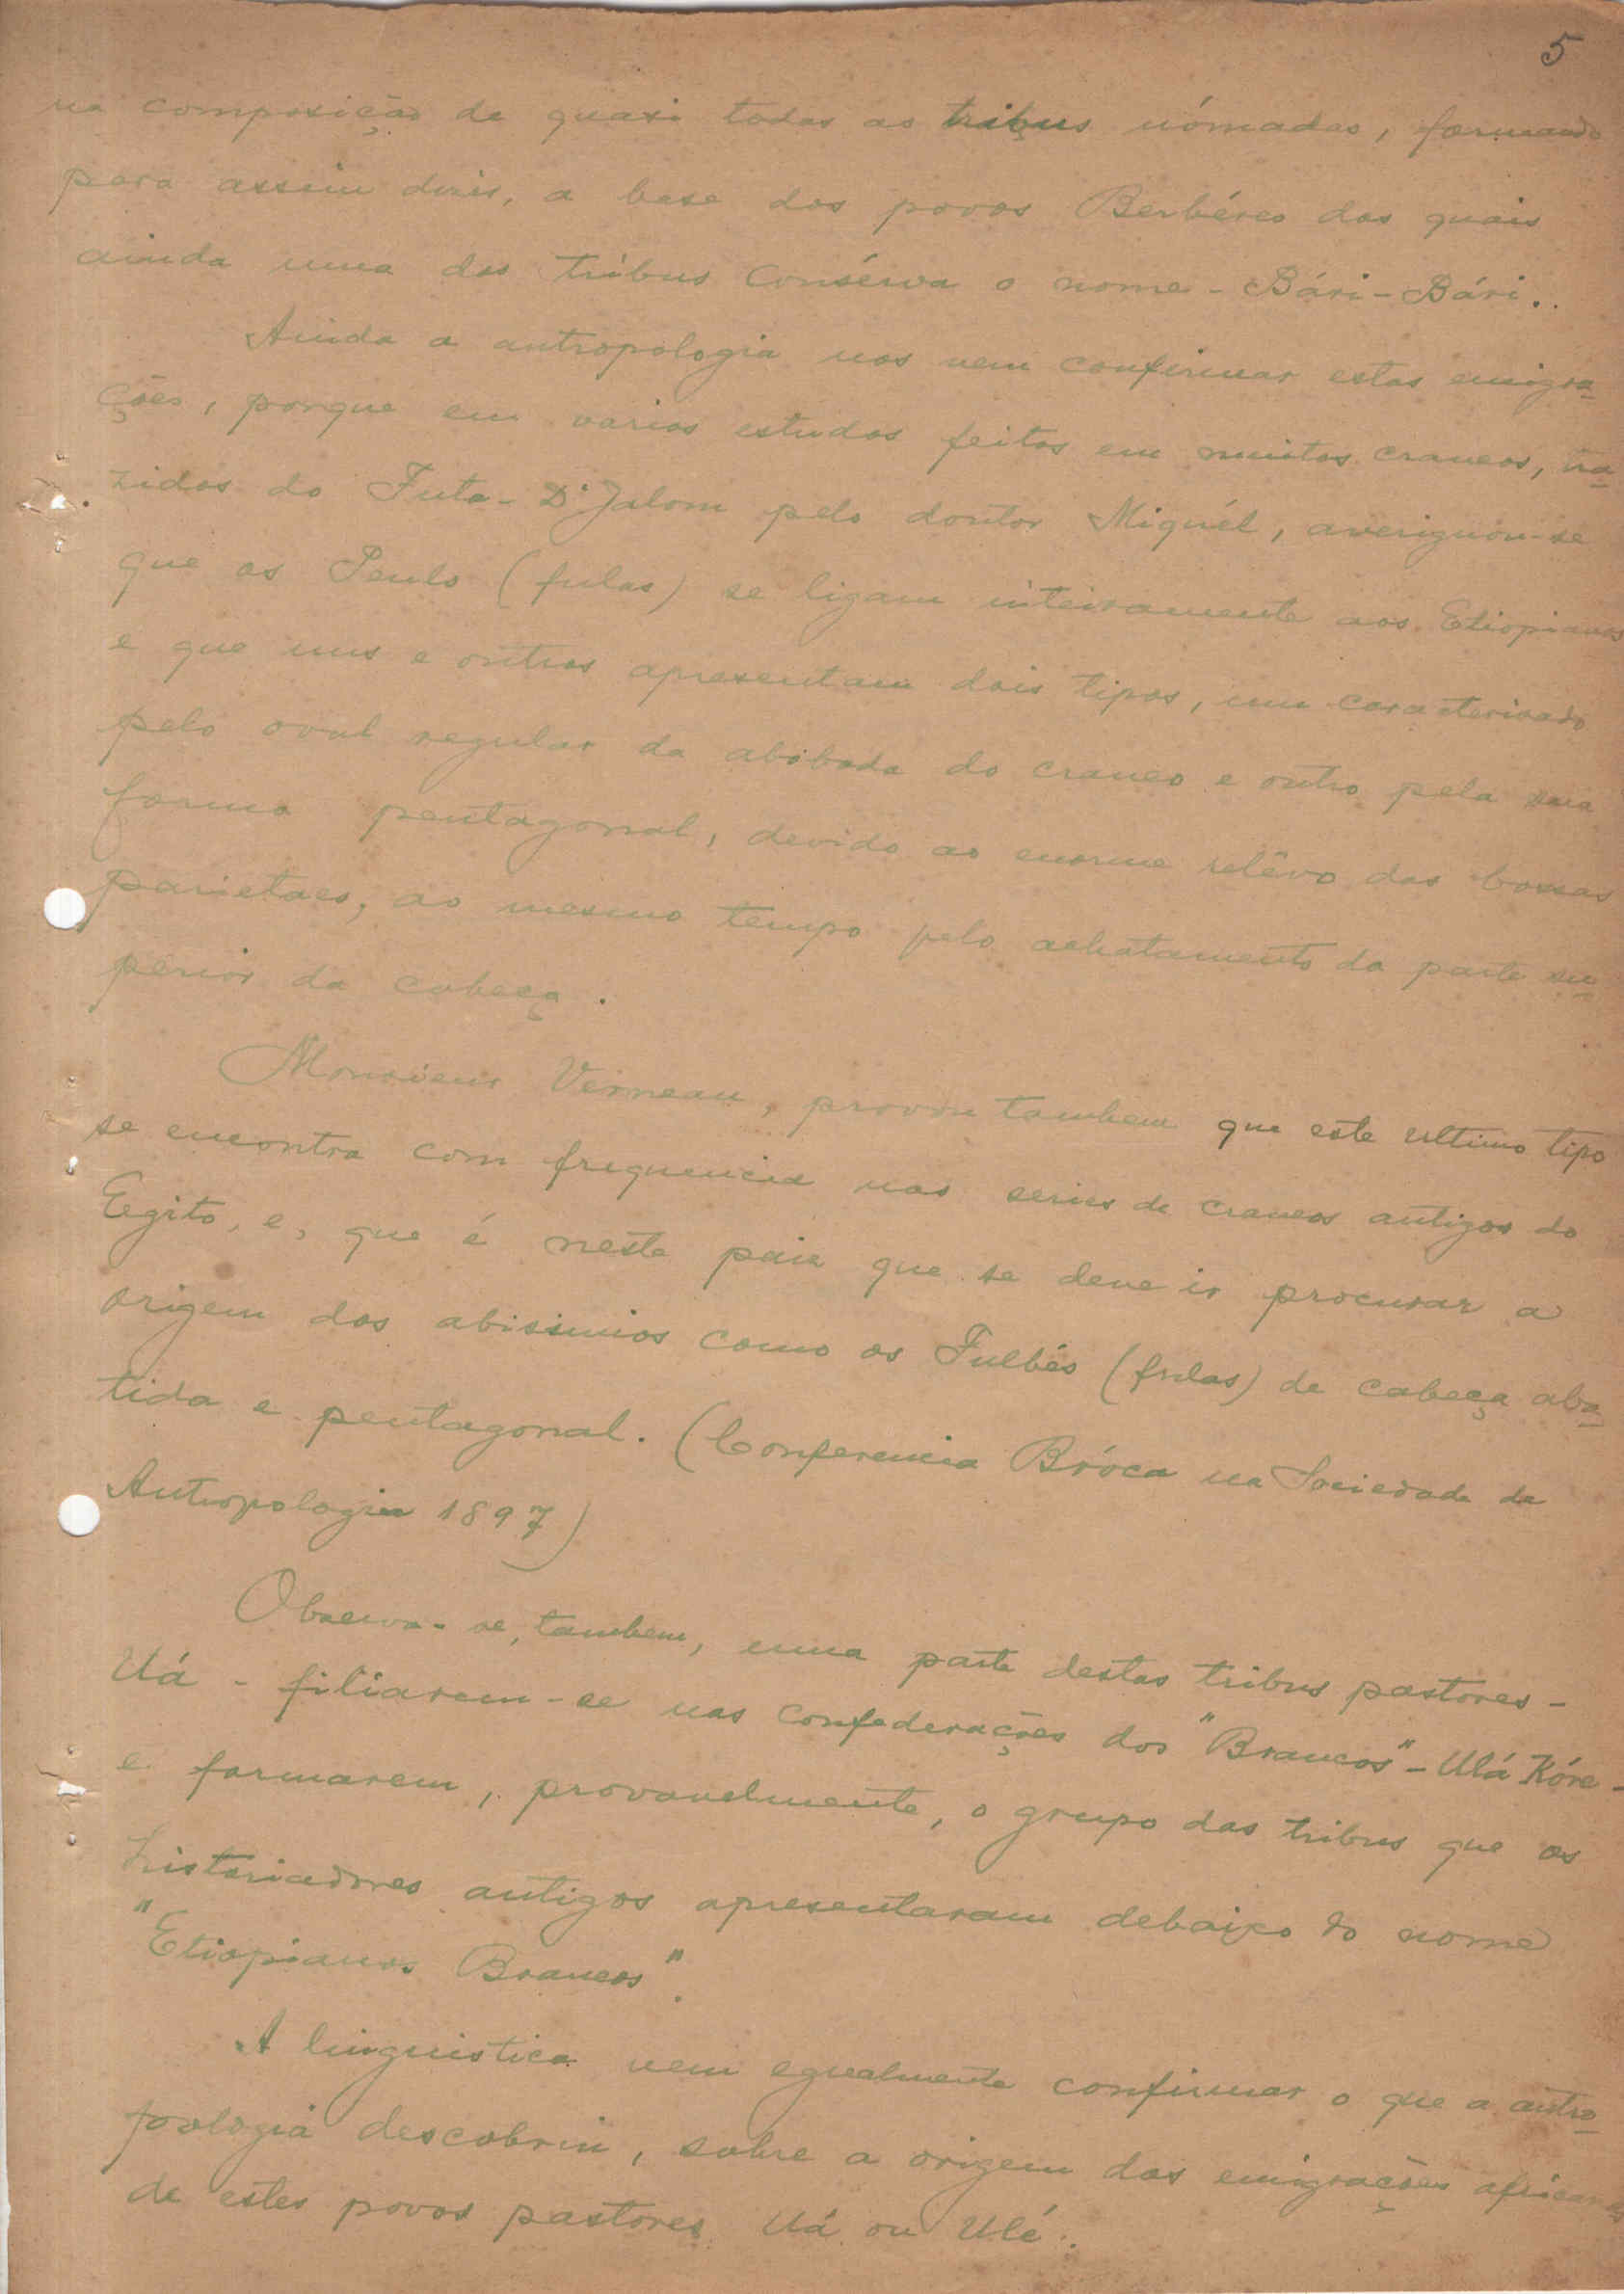 5
na composição de quasi todas as tribus nómadas, formando
para assim dizer, a base dos povos Berbéres dos quais
ainda uma das tribus consérva o nome - Bári - Bári..
Ainda a antropologia nos vem confirmar estas emigra-
ções, porque em varios estudos feitos em muitos craneos, tra-
zidos do Futa - D'Jalom pelo doutor Miguél, averiguou-se
que os Peulo (fulas) se ligam inteiramente aos Etiopianos
e que uns e outros apresentam dois tipos, um caracterisado
pelo oval regular da abóbada do craneo e outro pela sua
forma pentagonal, devido ao enorme relêvo das bossas
parietaes, ao mesmo tempo pelo achatamento da parte su-
perior da cabeça.
Monsieur Verneau, provou tambem que este ultimo tipo
se encontra com frequencia nas series de craneos antigos do
Egito, e, que é neste pais que se deve ir procurar a
origem dos abissimios como os Fulbés (fulas) de cabeça aba-
tida e pentagonal. (Conferencia Bróca na Sociedade de
Antropologia 1897)
Observa-se, tambem, uma parte destas tribus pastores -
Uá - filiarem-se nas confederações dos "Brancos" - Ulá Kóre -
e formarem, provavelmente, o grupo das tribus que os
historiadores antigos apresentaram debaixo do nome
"Etiopianos Brancos".
A linguistica vem egualmente confirmar o que a antro-
pologia descobriu, sobre a origem das emigrações africanas
de estes povos pastores Uá ou Ulé.